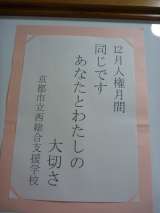 12月人権月間
同じです
あなたとわたしの
大切さ
京都市立西総合支援学校